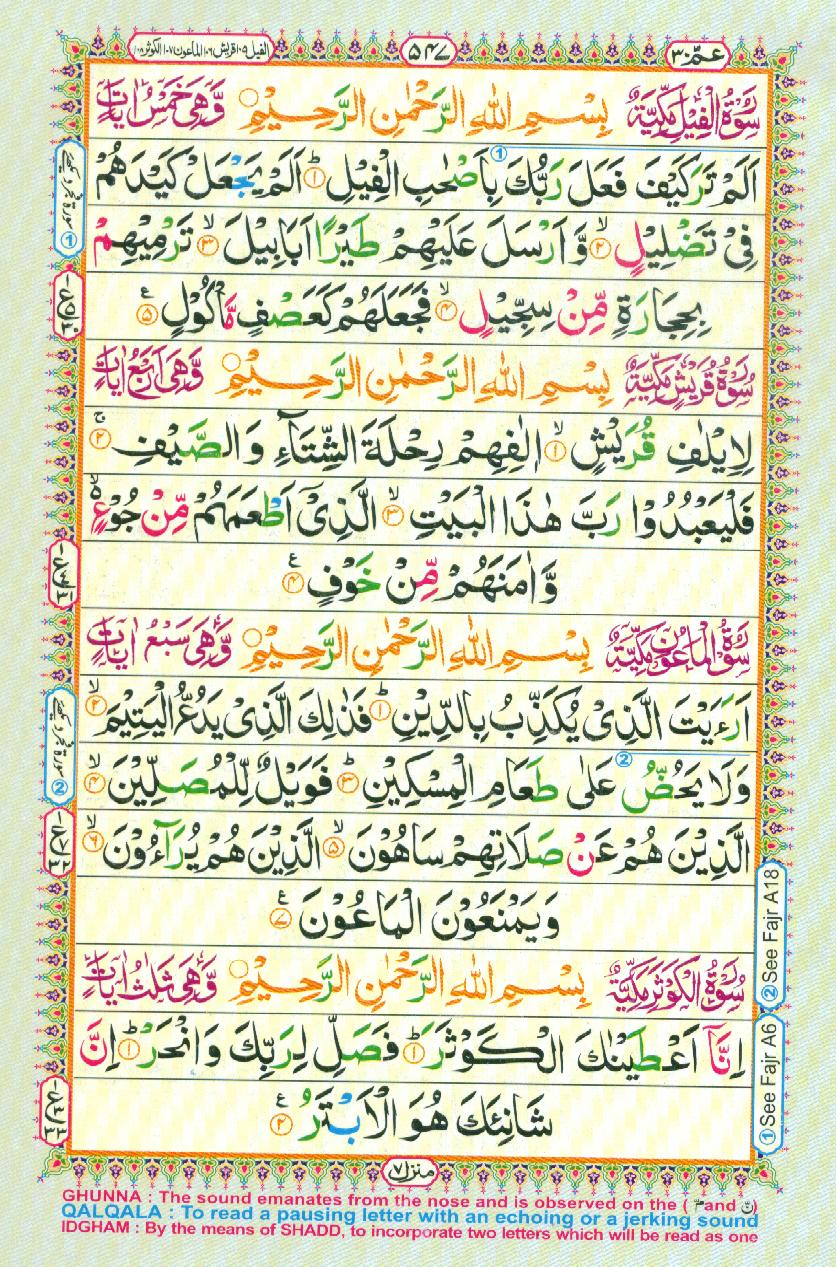 عمّ ٣٠
٥٤٧
الفيل ١٠٥ قريش ١٠٦ الماعون ١٠٧ الكوثر ١٠٨
سُوْرَةُ الْفِيْلِ مَكِّيَّةٌ بِسْمِ اللهِ الرَّحْمٰنِ الرَّحِيْمِ وَّهِىَ خَمْسُ اٰيَاتٍ
اَلَمْ تَرَ كَيْفَ فَعَلَ رَبُّكَ بِاَصْحٰبِ الْفِيْلِ ؕ﴿۱﴾ اَلَمْ يَجْعَلْ كَيْدَهُمْ
فِىْ تَضْلِيْلٍ ۙ﴿۲﴾ وَّاَرْسَلَ عَلَيْهِمْ طَيْرًا اَبَابِيْلَ ۙ﴿۳﴾ تَرْمِيْهِمْ
بِحِجَارَةٍ مِّنْ سِجِّيْلٍ ۙ﴿۴﴾ فَجَعَلَهُمْ كَعَصْفٍ مَّاْكُوْلٍ ﴿۵﴾
سُوْرَةُ قُرَيْشٍ مَكِّيَّةٌ بِسْمِ اللهِ الرَّحْمٰنِ الرَّحِيْمِ وَّهِىَ اَرْبَعُ اٰيَاتٍ
لِاِيْلٰفِ قُرَيْشٍ ۙ﴿۱﴾ اٖلٰفِهِمْ رِحْلَةَ الشِّتَآءِ وَالصَّيْفِ ۚ﴿۲﴾
فَلْيَعْبُدُوْا رَبَّ هٰذَا الْبَيْتِ ۙ﴿۳﴾ الَّذِىْۤ اَطْعَمَهُمْ مِّنْ جُوْعٍ ۙ
وَّاٰمَنَهُمْ مِّنْ خَوْفٍ ﴿۴﴾
سُوْرَةُ الْمَاعُوْنِ مَكِّيَّةٌ بِسْمِ اللهِ الرَّحْمٰنِ الرَّحِيْمِ وَّهِىَ سَبْعُ اٰيَاتٍ
اَرَءَيْتَ الَّذِىْ يُكَذِّبُ بِالدِّيْنِ ؕ﴿۱﴾ فَذٰلِكَ الَّذِىْ يَدُعُّ الْيَتِيْمَ ۙ﴿۲﴾
وَلَا يَحُضُّ عَلٰى طَعَامِ الْمِسْكِيْنِ ؕ﴿۳﴾ فَوَيْلٌ لِّلْمُصَلِّيْنَ ۙ﴿۴﴾
الَّذِيْنَ هُمْ عَنْ صَلَاتِهِمْ سَاهُوْنَ ۙ﴿۵﴾ الَّذِيْنَ هُمْ يُرَآءُوْنَ ۙ﴿۶﴾
وَيَمْنَعُوْنَ الْمَاعُوْنَ ﴿۷﴾
سُوْرَةُ الْكَوْثَرِ مَكِّيَّةٌ بِسْمِ اللهِ الرَّحْمٰنِ الرَّحِيْمِ وَّهِىَ ثَلٰثُ اٰيَاتٍ
اِنَّاۤ اَعْطَيْنٰكَ الْكَوْثَرَ ؕ﴿۱﴾ فَصَلِّ لِرَبِّكَ وَانْحَرْ ؕ﴿۱﴾ اِنَّ
شَانِئَكَ هُوَ الْاَبْتَرُ ﴿۲﴾
② See Fajr A18
① See Fajr A6
منزل ٧
GHUNNA : The sound emanates from the nose and is observed on the ( مّ and نّ )
QALQALA : To read a pausing letter with an echoing or a jerking sound
IDGHAM : By the means of SHADD, to incorporate two letters which will be read as one